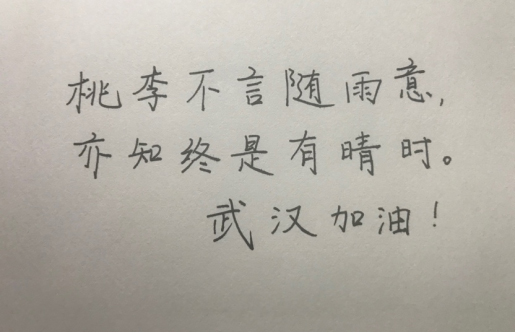 桃李不言随雨意,
亦知终是有晴时。
武汉加油!